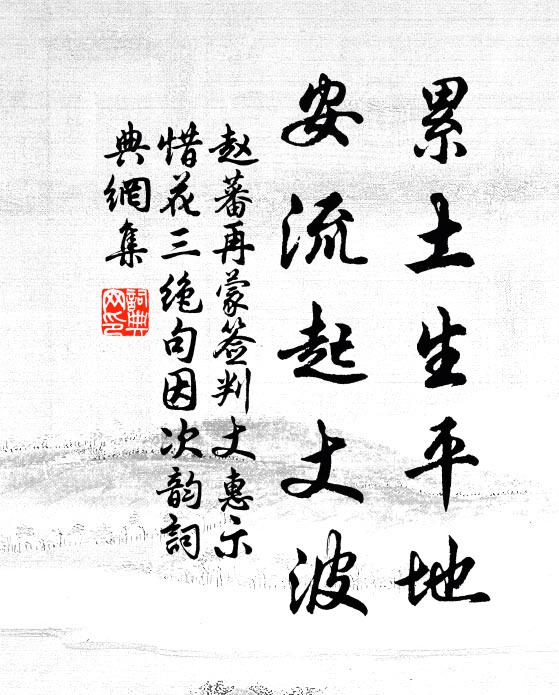 累土生平地
安流起丈波
赵蕃再蒙签判丈惠示
惜花三绝句因次韵詞
典網集
詞典
网印